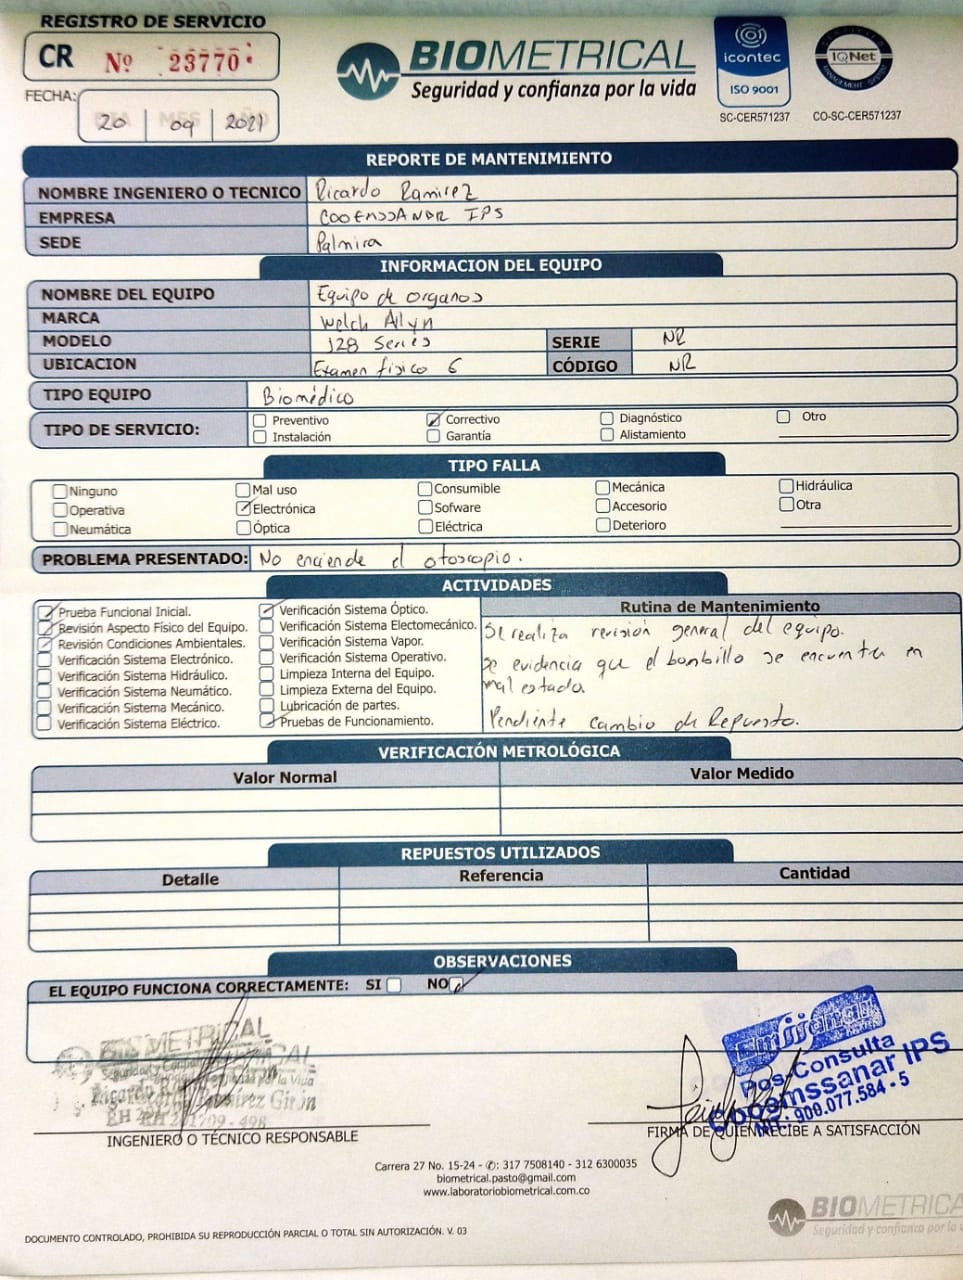 REGISTRO DE SERVICIO
CR Nº 23770
BIOMETRICAL
Seguridad y confianza por la vida
icontec
ISO 9001
SC-CER571237
IQNet
CO-SC-CER571237
FECHA: 20 09 2021
REPORTE DE MANTENIMIENTO
NOMBRE INGENIERO O TECNICO Ricardo Ramirez
EMPRESA COOEMSSANAR IPS
SEDE Palmira
INFORMACION DEL EQUIPO
NOMBRE DEL EQUIPO Equipo de organos
MARCA Welch Allyn
MODELO 128 Series SERIE NR
UBICACION Examen fisico 6 CÓDIGO NR
TIPO EQUIPO Biomédico
TIPO DE SERVICIO: Preventivo Correctivo Diagnóstico Otro
Instalación Garantía Alistamiento
TIPO FALLA
Ninguno Mal uso Consumible Mecánica Hidráulica
Operativa Electrónica Sofware Accesorio Otra
Neumática Óptica Eléctrica Deterioro
PROBLEMA PRESENTADO: No enciende el otoscopio.
ACTIVIDADES
Prueba Funcional Inicial.
Revisión Aspecto Físico del Equipo.
Revisión Condiciones Ambientales.
Verificación Sistema Electrónico.
Verificación Sistema Hidráulico.
Verificación Sistema Neumático.
Verificación Sistema Mecánico.
Verificación Sistema Eléctrico.
Verificación Sistema Óptico.
Verificación Sistema Electomecánico.
Verificación Sistema Vapor.
Verificación Sistema Operativo.
Limpieza Interna del Equipo.
Limpieza Externa del Equipo.
Lubricación de partes.
Pruebas de Funcionamiento.
Rutina de Mantenimiento
Se realiza revisión general del equipo.
se evidencia que el bombillo se encuentra en
mal estado.
Pendiente cambio de Repuesto.
VERIFICACIÓN METROLÓGICA
Valor Normal Valor Medido
REPUESTOS UTILIZADOS
Detalle Referencia Cantidad
OBSERVACIONES
EL EQUIPO FUNCIONA CORRECTAMENTE: SI NO
BIOMETRICAL
Ricardo Ramírez Girón
Emssanar
Pos-Consulta
Cooemssanar IPS
NIT: 900.077.584-5
INGENIERO O TÉCNICO RESPONSABLE
FIRMA DE QUIEN RECIBE A SATISFACCIÓN
Carrera 27 No. 15-24 - ✆: 317 7508140 - 312 6300035
biometrical.pasto@gmail.com
www.laboratoriobiometrical.com.co
BIOMETRICA
Seguridad y confianza por la
DOCUMENTO CONTROLADO, PROHIBIDA SU REPRODUCCIÓN PARCIAL O TOTAL SIN AUTORIZACIÓN. V. 03